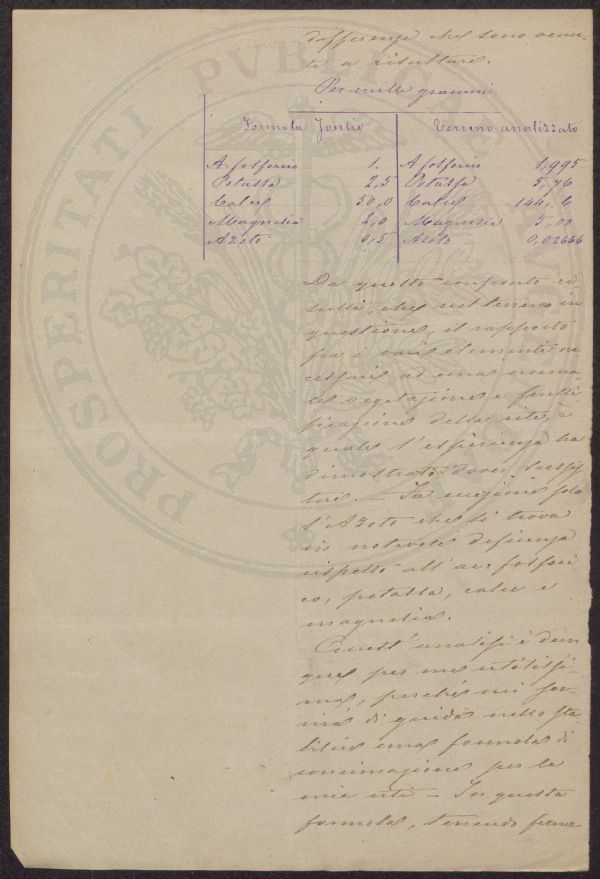 differenze che sono venu-
te a risultare.
Per mille grammi
Formola Joulie Terreno analizzato
A. fosforico 1. A fosforico 1,995
Potassa 2,5 Potassa 5,76
Calce 50,0 Calce 144,6
Magnesia 2,0 Magnesia 5,00
Azoto 0,5 Azoto 0,02666
Da questo confronto ri-
sulta, che nel terreno in
questione, il rapporto
fra i varii elementi ne
cessarii ad una norma-
le vegetazione e frutti
ficazione della vite, è
quale l'esperienza ha
dimostrato dover sussis
tere. — Fa eccezione solo
l'Azoto che si trova
in notevole deficienza
rispetto all'ac: fosfori
co, potassa, calce e
magnesia.
Quest'analisi è dun
que per me utilissi
ma, perchè mi ser-
virà di guida nello sta
bilire una formola di
concimazione per le
mie viti — In questa
formola, tenendo ferma
PROSPERITATI PVBLICAE